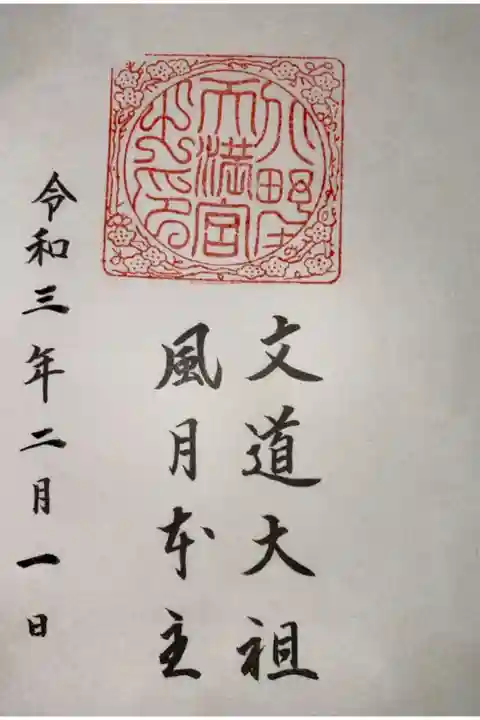 天満宮
之印
文道大祖
風月本主
令和三年二月一日